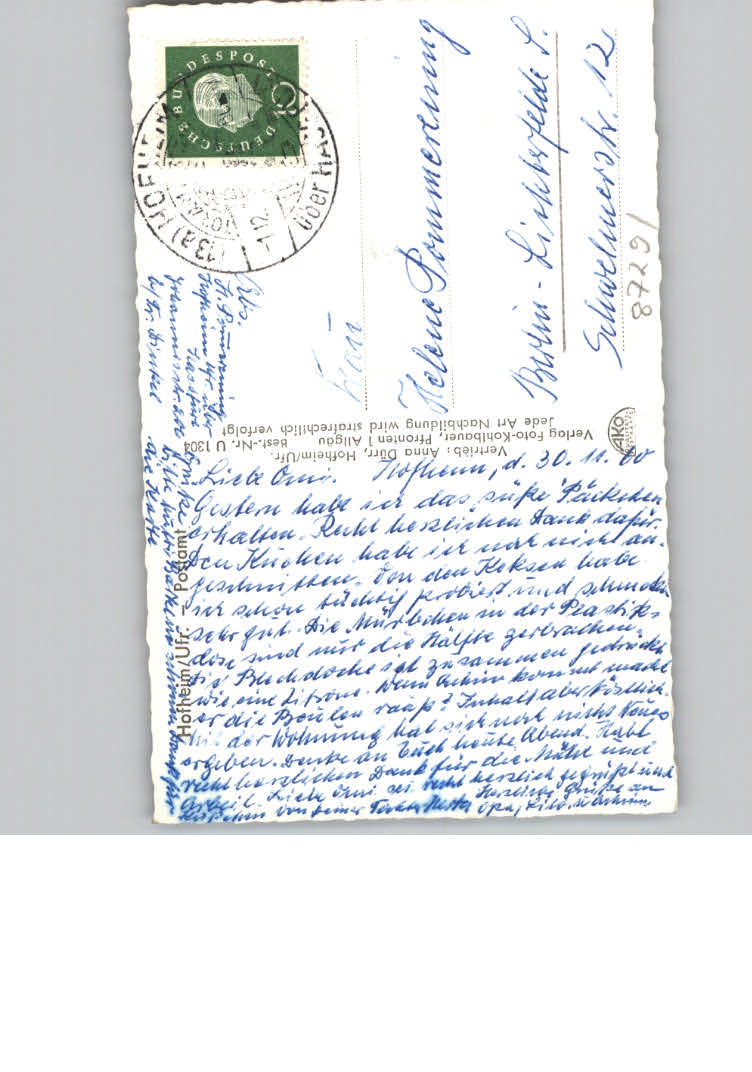 Liebe Omi. Hofheim, d. 30.11.60
Gestern habe ich das süße Päckchen
erhalten. Recht herzlichen Dank dafür.
Den Kuchen habe ich noch nicht an-
geschnitten. Von den Keksen habe
ich schon tüchtig probiert und schmecken
sehr gut. Die Mürbchen in der Plastik-
dose sind nur die Hälfte zerbrochen.
Die Blechdose ist zusammen gedrückt
wie eine Zitrone. Wenn Achim kommt macht
er die Beulen raus? Inhalt aber köstlich.
Mit der Wohnung hat sich noch nichts Neues
ergeben. Denke an Euch heute Abend. Habt
recht herzlichen Dank für die Mühe und
Arbeit. Liebe Omi sei recht herzlich gegrüßt und
Küßchen von Deiner Tochter Herzliche Grüße an
Opa,
Hofheim/Ufr. - Postamt
Vertrieb: Anna Dürr, Hofheim/Ufr.
Verlag Foto-Kohlbauer, Pfronten 1 Allgäu Best.-Nr. U 1304
Jede Art Nachbildung wird strafrechtlich verfolgt
AKO
Abs.
H. Pommerening
Hofheim Ufr. über
Hassfurt
Johannisstr. 200
b/Fr. Dinkel
DEUTSCHE BUNDESPOST
(13a) HOFHEIM
über HASSFURT
-1.12.
Frau
Helene Pommerening
Berlin-Lichterfelde S.
Schwelmerstr. 12
87291